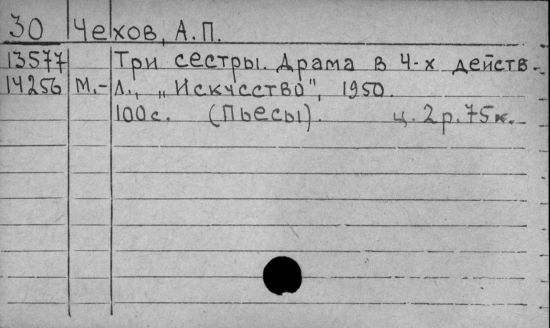 30 Чехов, А.П.
13577 Три сестры. Драма в 4-х действ.
14256 М.-Л., „Искусство", 1950.
100с. (Пьесы). ц. 2р. 75к.